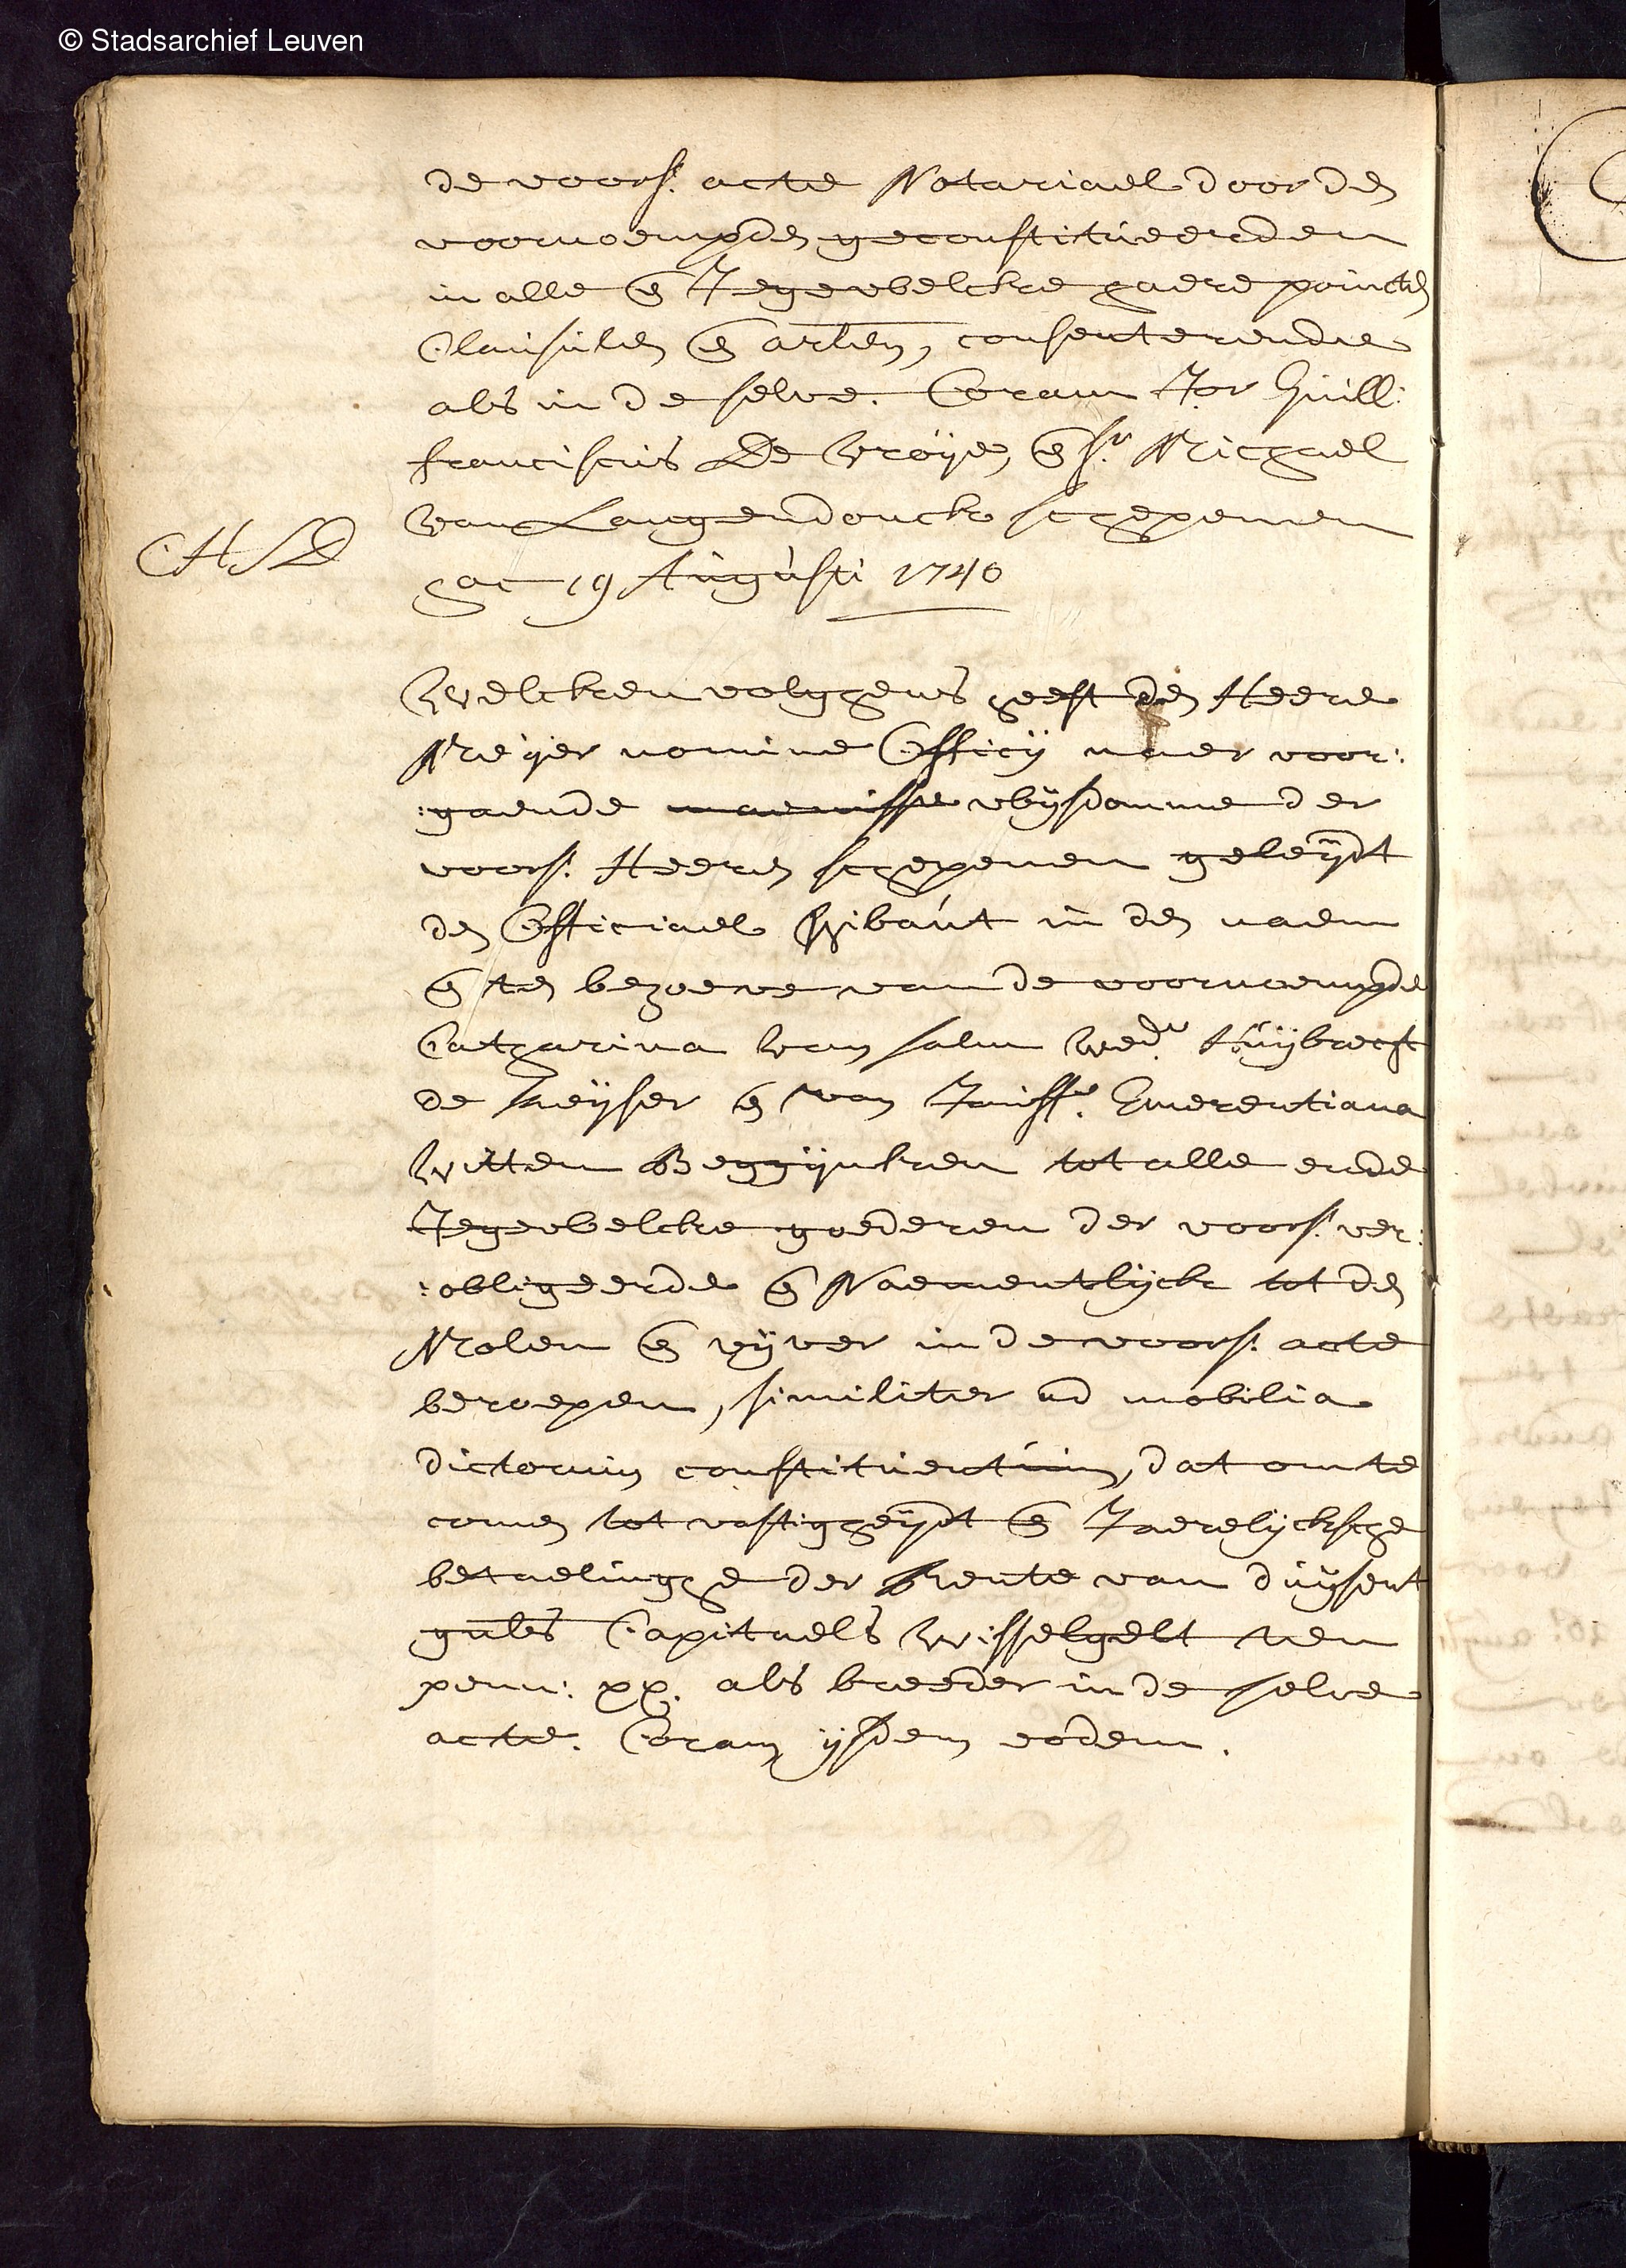 © Stadsarchief Leuven
de voors. acte Notariael door den
voornoempden geconstitueerden
in alle en Iegewelcke haere poincten
Clausulen en artlen, consenterende
als in de selve. Coram Jor Guill:
franciscus De Vroije, en sr. Michael
van Langendoncke schepenen
hac 19 Augusti 1740
Welcken volghens heeft den Heere
Meijer nomine Officij naer voor:
:gaende wijsdomme der
voors. Heeren schepenen geleijdt
den Officiael Gibaut in den naem
en ten behoeve van de voornoempde
Catharina van salm wedu. Huijbrecht
de Keijser en van Jouffe. Emerentiana
Witten Beggijnken tot alle ende
Iegewelcke goederen der voors. ver:
:obligeerde en Naementlijck tot den
Molen en vijver in de voors. acte
beroepen, similiter ad mobilia
dictorum constituentium, dat om te
comen tot vastigheijdt en Jaerelijcksche
betaelinghe der Rente van duijsent
guls Capitaels Wisselgelt den
penn: xx. als breeder in de selve
acte. Coram ijsdem eodem.